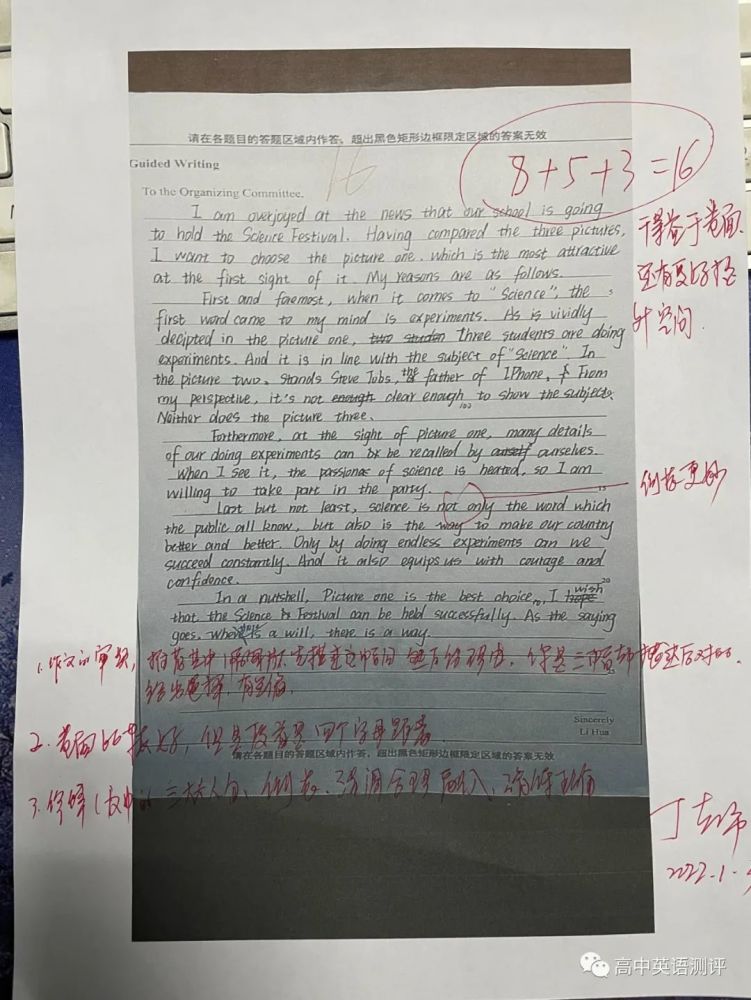 请在各题目的答题区域内作答，超出黑色矩形边框限定区域的答案无效
Guided Writing
16
8+5+3=16
To the Organizing Committee.
I am overjoyed at the news that our school is going
to hold the Science Festival. Having compared the three pictures,
I want to choose the picture one. which is the most attractive
at the first sight of it. My reasons are as follows.
得益于卷面,
还有更好提
升空间.
First and foremost, when it comes to "Science", the
first word came to my mind is experiments. As is vividly
decipted in the picture one, two studen Three students are doing
experiments. And it is in line with the subject of "Science". In
the picture two, stands Steve Jobs, the father of IPhone, From
my perspective, it's not enough clear enough to show the subject.
Neither does the picture three.
Forthermore, at the sight of picture one, many details
of our doing experiments can be recalled by ourself ourselves.
When I see it, the passion of science is heated, so I am
willing to take part in the party.
倒装更妙
Last but not least, science is not only the word which
the public all know, but also is the way to make our country
better and better. Only by doing endless experiments can we
succeed constantly. And it also equips us with courage and
confidence.
In a nutshell, Picture one is the best choice, I hope wish
that the Science Festival can be held successfully. As the saying
goes, where is a will, there is a way.
1. 作文的审题，推荐其中
给出选择，有至偏
Sincerely
Li Hua
2. 卷面比较好，但是
请在各题目的答题区域内作答，超出黑色矩形边框限定区域的答案无效
3.
丁老师
2022.1.
高中英语测评